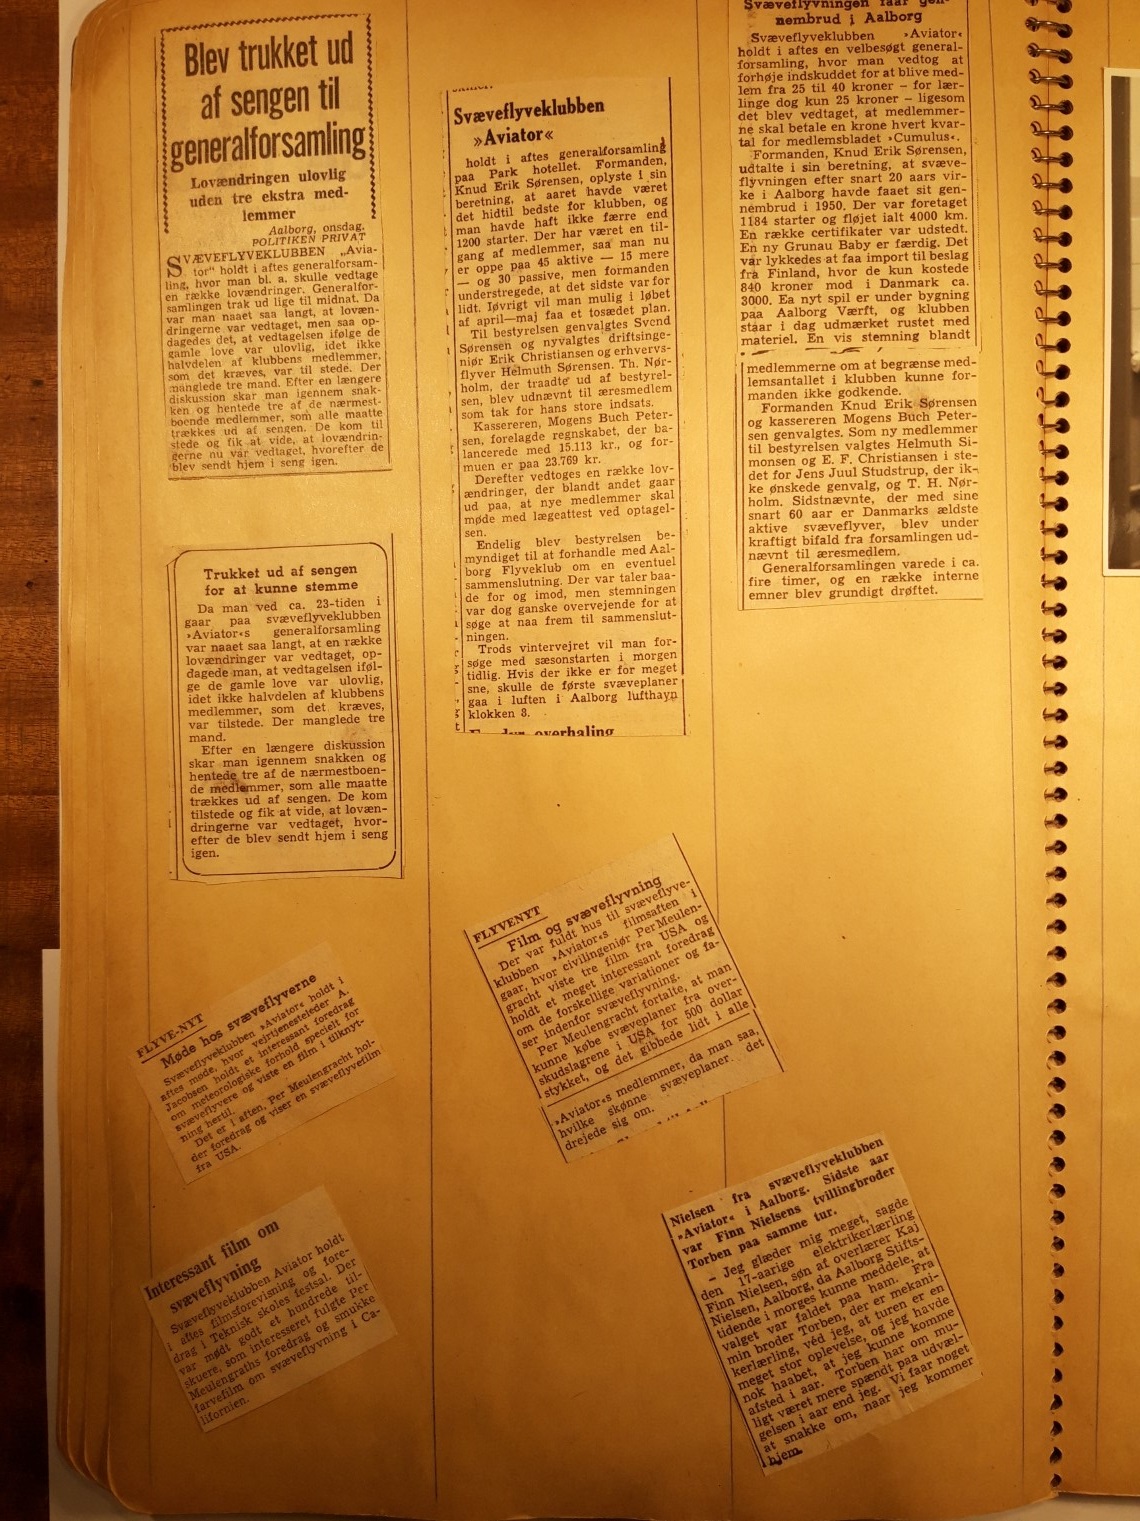 Blev trukket ud
af sengen til
generalforsamling
Lovændringen ulovlig
uden tre ekstra med-
lemmer
Aalborg, onsdag.
POLITIKEN PRIVAT
SVÆVEFLYVEKLUBBEN „Avia-
tor“ holdt i aftes generalforsam-
ling, hvor man bl. a. skulle vedtage
en række lovændringer. Generalfor-
samlingen trak ud lige til midnat. Da
var man naaet saa langt, at lovæn-
dringerne var vedtaget, men saa op-
dagedes det, at vedtagelsen ifølge de
gamle love var ulovlig, idet ikke
halvdelen af klubbens medlemmer,
som det kræves, var til stede. Der
manglede tre mand. Efter en længere
diskussion skar man igennem snak-
ken og hentede tre af de nærmest-
boende medlemmer, som alle maatte
trækkes ud af sengen. De kom til
stede og fik at vide, at lovændrin-
gerne nu var vedtaget, hvorefter de
blev sendt hjem i seng igen.
Trukket ud af sengen
for at kunne stemme
Da man ved ca. 23-tiden i
gaar paa svæveflyveklubben
»Aviator«s generalforsamling
var naaet saa langt, at en række
lovændringer var vedtaget, op-
dagede man, at vedtagelsen iføl-
ge de gamle love var ulovlig,
idet ikke halvdelen af klubbens
medlemmer, som det kræves,
var tilstede. Der manglede tre
mand.
Efter en længere diskussion
skar man igennem snakken og
hentede tre af de nærmestboen-
de medlemmer, som alle maatte
trækkes ud af sengen. De kom
tilstede og fik at vide, at lovæn-
dringerne var vedtaget, hvor-
efter de blev sendt hjem i seng
igen.
FLYVE-NYT
Møde hos svæveflyverne
Svæveflyveklubben »Aviator« holdt i
aftes møde, hvor vejrtjenesteleder A.
Jacobsen holdt et interessant foredrag
om meteorologiske forhold specielt for
svæveflyvere og viste en film i tilknyt-
ning hertil.
Det er i aften, Per Meulengracht hol-
der foredrag og viser en svæveflyvefilm
fra USA.
Interessant film om
svæveflyvning
Svæveflyveklubben Aviator holdt
i aftes filmsforevisning og fore-
drag i Teknisk skoles festsal. Der
var mødt godt et hundrede til-
skuere, som interesseret fulgte Per
Meulengraths foredrag og smukke
farvefilm om svæveflyvning i Ca-
lifornien.
Svæveflyveklubben
»Aviator«
holdt i aftes generalforsamling
paa Park hotellet. Formanden,
Knud Erik Sørensen, oplyste i sin
beretning, at aaret havde været
det hidtil bedste for klubben, og
man havde haft ikke færre end
1200 starter. Der har været en til-
gang af medlemmer, saa man nu
er oppe paa 45 aktive — 15 mere
— og 30 passive, men formanden
understregede, at det sidste var for
lidt. Iøvrigt vil man mulig i løbet
af april—maj faa et tosædet plan.
Til bestyrelsen genvalgtes Svend
Sørensen og nyvalgtes driftsinge-
niør Erik Christiansen og erhvervs-
flyver Helmuth Sørensen. Th. Nør-
holm, der traadte ud af bestyrel-
sen, blev udnævnt til æresmedlem
som tak for hans store indsats.
Kassereren, Mogens Buch Peter-
sen, forelagde regnskabet, der ba-
lancerede med 15.113 kr., og for-
muen er paa 23.769 kr.
Derefter vedtoges en række lov-
ændringer, der blandt andet gaar
ud paa, at nye medlemmer skal
møde med lægeattest ved optagel-
sen.
Endelig blev bestyrelsen be-
myndiget til at forhandle med Aal-
borg Flyveklub om en eventuel
sammenslutning. Der var taler baa-
de for og imod, men stemningen
var dog ganske overvejende for at
søge at naa frem til sammenslut-
ningen.
Trods vintervejret vil man for-
søge med sæsonstarten i morgen
tidlig. Hvis der ikke er for meget
sne, skulle de første svæveplaner
gaa i luften i Aalborg lufthavn
klokken 8.
overhaling
FLYVENYT
Film og svæveflyvning
Der var fuldt hus til svæveflyve-
klubben »Aviator«s filmsaften i
gaar, hvor civilingeniør Per Meulen-
gracht viste tre film fra USA og
holdt et meget interessant foredrag
om de forskellige variationer og fa-
ser indenfor svæveflyvning.
Per Meulengracht fortalte, at man
kunne købe svæveplaner fra over-
skudslagrene i USA for 500 dollar
stykket, og det gibbede lidt i alle
»Aviator«s medlemmer, da man saa,
hvilke skønne svæveplaner det
drejede sig om.
Svæveflyvningen faar gen-
nembrud i Aalborg
Svæveflyveklubben »Aviator«
holdt i aftes en velbesøgt general-
forsamling, hvor man vedtog at
forhøje indskuddet for at blive med-
lem fra 25 til 40 kroner – for lær-
linge dog kun 25 kroner – ligesom
det blev vedtaget, at medlemmer-
ne skal betale en krone hvert kvar-
tal for medlemsbladet »Cumulus«.
Formanden, Knud Erik Sørensen,
udtalte i sin beretning, at svæve-
flyvningen efter snart 20 aars vir-
ke i Aalborg havde faaet sit gen-
nembrud i 1950. Der var foretaget
1184 starter og fløjet ialt 4000 km.
En række certifikater var udstedt.
En ny Grunau Baby er færdig. Det
var lykkedes at faa import til beslag
fra Finland, hvor de kun kostede
840 kroner mod i Danmark ca.
3000. Ea nyt spil er under bygning
paa Aalborg Værft, og klubben
staar i dag udmærket rustet med
materiel. En vis stemning blandt
medlemmerne om at begrænse med-
lemsantallet i klubben kunne for-
manden ikke godkende.
Formanden Knud Erik Sørensen
og kassereren Mogens Buch Peter-
sen genvalgtes. Som ny medlemmer
til bestyrelsen valgtes Helmuth Si-
monsen og E. F. Christiansen i ste-
det for Jens Juul Studstrup, der ik-
ke ønskede genvalg, og T. H. Nør-
holm. Sidstnævnte, der med sine
snart 60 aar er Danmarks ældste
aktive svæveflyver, blev under
kraftigt bifald fra forsamlingen ud-
nævnt til æresmedlem.
Generalforsamlingen varede i ca.
fire timer, og en række interne
emner blev grundigt drøftet.
Nielsen fra svæveflyveklubben
»Aviator« i Aalborg. Sidste aar
var Finn Nielsens tvillingbroder
Torben paa samme tur.
– Jeg glæder mig meget, sagde
den 17-aarige elektrikerlærling
Finn Nielsen, søn af overlærer Kaj
Nielsen, Aalborg, da Aalborg Stifts-
tidende i morges kunne meddele, at
valget var faldet paa ham. Fra
min broder Torben, der er mekani-
kerlærling, véd jeg, at turen er en
meget stor oplevelse, og jeg havde
nok haabet, at jeg kunne komme
afsted i aar. Torben har om mu-
ligt været mere spændt paa udvæl-
gelsen i aar end jeg. Vi faar noget
at snakke om, naar jeg kommer
hjem.